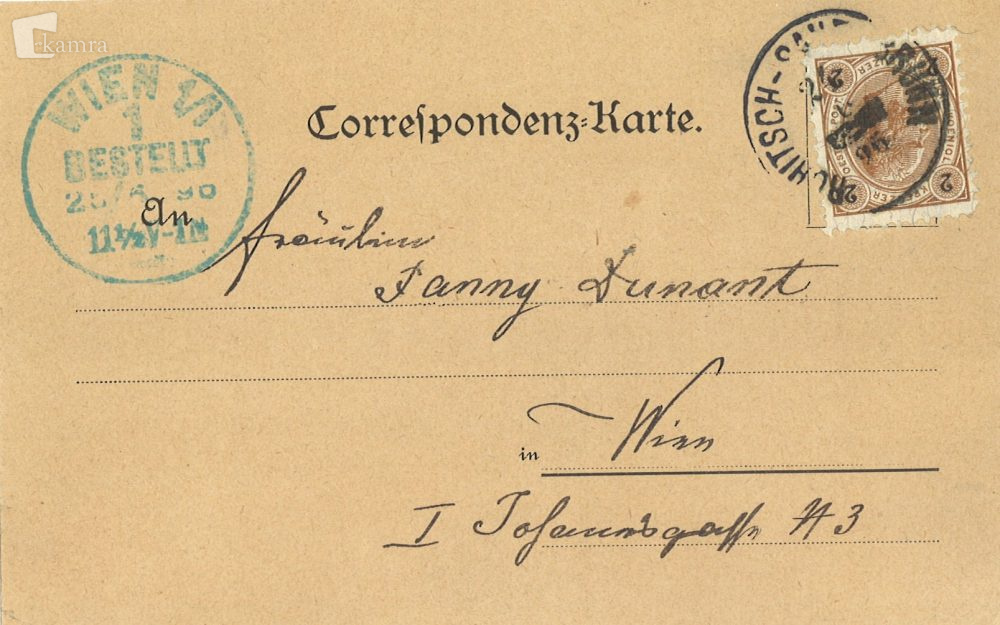 kamra
WIEN 1/1
1
BESTELLT
11½V-1N
Correspondenz-Karte.
ROHITSCH-SAUERBRUNN
2
KREUZER
2
2
An Fräulein
Fanny Dunant
in Wien
I Johannsgasse # 3